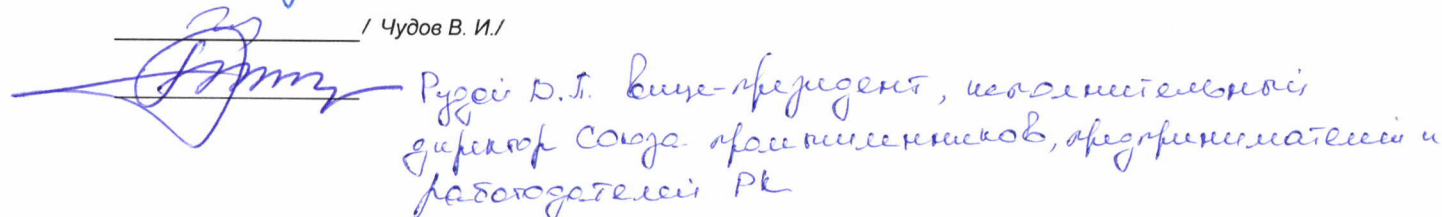 / Чудов В. И./
Рудой D.П. вице-президент, исполнительный
директор Союза промышленников, предпринимателей и
работодателей РК